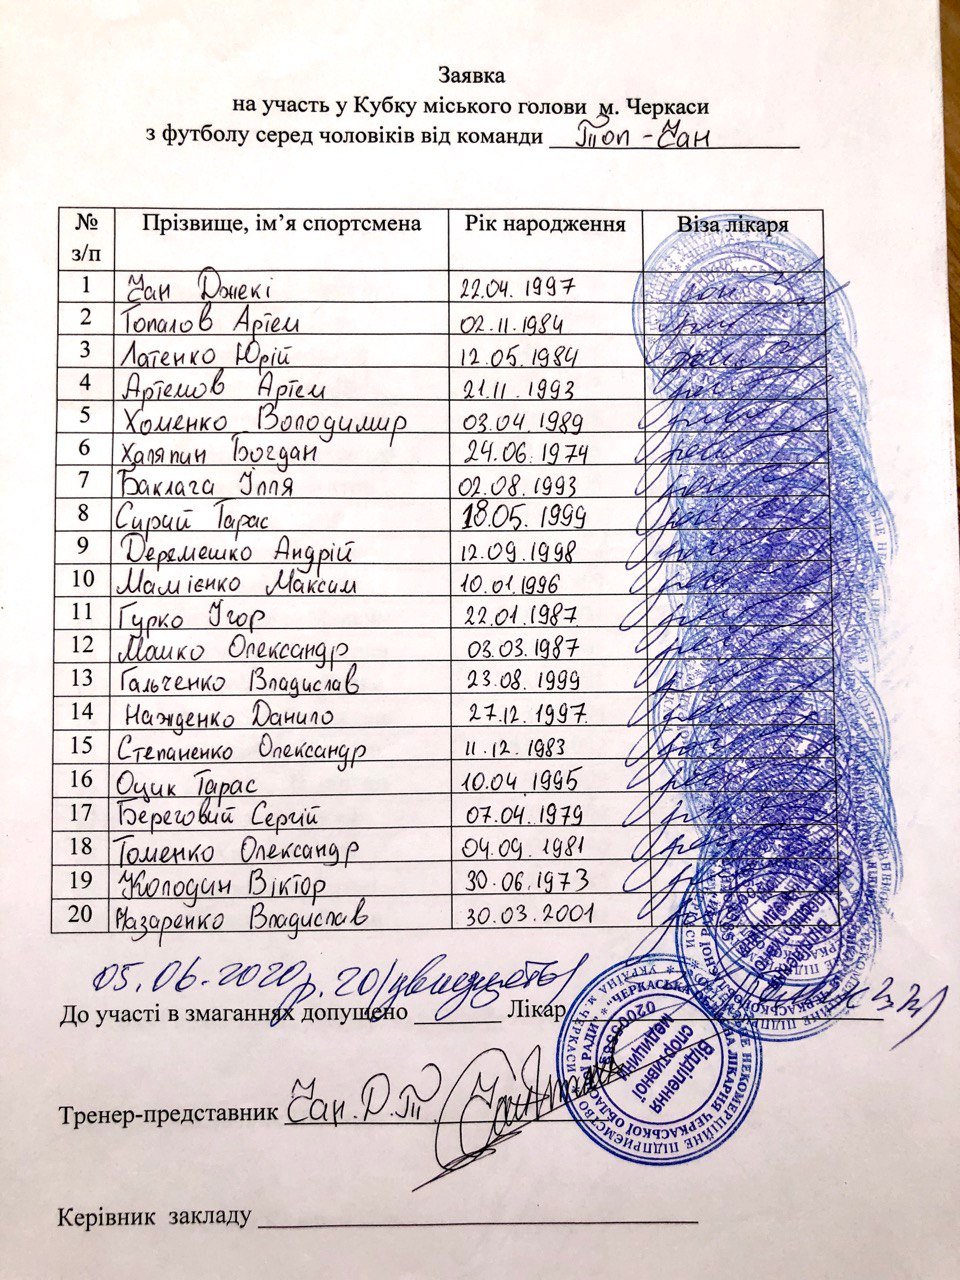 Заявка
на участь у Кубку міського голови м. Черкаси
з футболу серед чоловіків від команди Топ-Чан
№ з/п Прізвище, ім’я спортсмена Рік народження Віза лікаря
1 Чан Джекі 22.04.1997
2 Топалов Артем 02.11.1984
3 Латенко Юрій 12.05.1984
4 Артемов Артем 21.11.1993
5 Хоменко Володимир 03.04.1989
6 Халяпин Богдан 24.06.1974
7 Баклага Ілля 02.08.1993
8 Сирий Тарас 18.05.1999
9 Деремешко Андрій 12.09.1998
10 Мамієнко Максим 10.01.1996
11 Гурко Ігор 22.01.1987
12 Машко Олександр 03.03.1987
13 Гальченко Владислав 23.08.1999
14 Нажденко Данило 27.12.1997
15 Степаненко Олександр 11.12.1983
16 Оцик Тарас 10.04.1995
17 Береговий Сергій 07.04.1979
18 Томенко Олександр 04.09.1981
19 Колодин Віктор 30.06.1973
20 Назаренко Владислав 30.03.2001
05.06.2020р. 20 (двадцять)
До участі в змаганнях допущено Лікар
Тренер-представник Чан.Д.Т
Відділення спортивної медицини
Керівник закладу